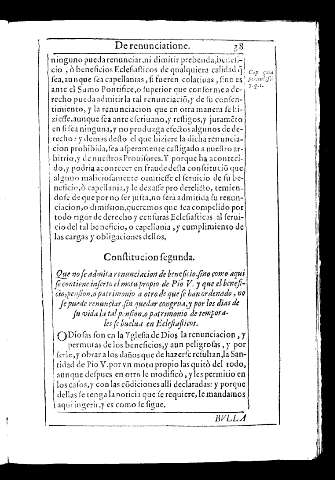 De renunciatione. 38
ninguno pueda renunciar, ni dimitir prebenda, benefi-
cio, ò beneficios Eclesiasticos de qualquiera calidad q̃
sea, aunque sea capellanias, si fueren colatiuas, sino es
ante el Sumo Pontifice, o superior que conforme a de-
recho pueda admitir la tal renunciació, y de su consen-
timiento, y la renunciacion que en otra manera se hi-
ziesse, aunque sea ante escriuano, y testigos, y juramẽto
en si sea ninguna, y no produzga efectos algunos de de-
recho: y demas desto el que hiziere la dicha renuncia-
cion prohibida, sea asperamente castigado a nuestro ar-
bitrio, y de nuestros Prouisores. Y porque ha aconteci-
do, y podria acontecer en fraude desta constitució que
alguno maliciosamente omitiesse el seruicio de su be-
neficio, ò capellania, y le dexasse pro derelicto, temien-
dose de que por no ser justa, no sera admitida su renun-
ciacion, o dimission, queremos que sea compelido por
todo rigor de derecho y censuras Eclesiasticas al serui-
cio del tal beneficio, o capellania, y cumplimiento de
las cargas y obligaciones dellos.
Constitucion segunda.
Que no se admita renunciacion de beneficio, sino como aqui
se contiene inserto el motu proprio de Pio V. y que el benefi-
cio, pension, o patrimonio a otro de que se han ordenado, no
se puede renunciar sin quedar congrua, y por los dias de
su vida la tal pension, o patrimonio de tempora-
les se buelua en Eclesiasticos.
ODiosas son en la Yglesia de Dios la renunciacion, y
permutas de los beneficios, y aun peligrosas, y por
serlo, y obrar a los daños que de hazerse resultan, la San-
tidad de Pio V. por vn motu proprio las quitò del todo,
aunque despues en otro le modificò, y les permitio en
los casos, y con las cõdiciones alli declaradas: y porque
dellas se tenga la noticia que se requiere, le mandamos
aqui ingerir, y es como se sigue.
BVLLA